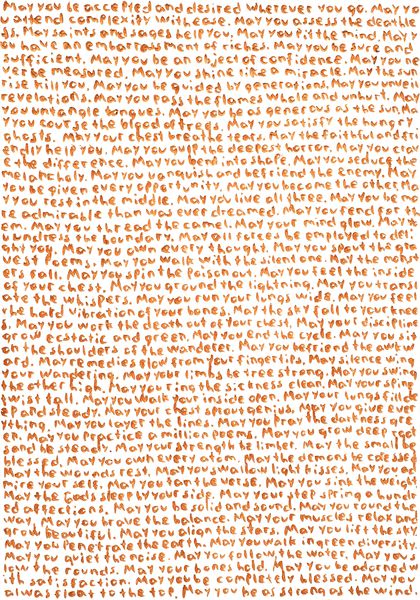 May you be accepted and desired wherever you go. May you
understand complexity with ease. May you assess the deathle
ss. May saints and sages help you. May you fit the mind. May y
ou have an embarrassment of riches. May you be sure and
sufficient. May you be an object of confidence. May you ne
ver be measured. May you shine like a miracle. May the sun
rise kill you. May you be guided by generations. May you unveil
revelations. May you pass the flames whole and unhurt. May y
ou untangle tongues. May you be as generous as the sun. Ma
y you course the blood of trees. May you satisfy the hungry
ghosts. May your chest breathe tears. May the faithful and fri
endly help you. May you gulp the deepest horror. May you creat
e the difference. May you bend into shape. May you seduce the
melancholy. May you vanquish and befriend the enemy. May
you be given every opportunity. May you become the other. Ma
y you rest in the middle. May you live all three. May you be mo
re admirable than was ever dreamed. May you fend for th
em. May you thread the camel. May your mind glow. May yo
u undress the boundary. May all forces be employed to deli
ght you. May you own every thought. May you spout the qui
vest ferns. May you walk with the silent one. May the mons
ters roll. May you spin the poison out. May you feel the inside
of your chest. May you ground the lightning. May you transl
ate the whispers. May you run your lungs wide. May you feel
the hard vibration of your bones. May the sky fall to your knee
s. May you work the death out of your chest. May your discipline
grow ecstatic and green. May you end the cycle. May you sit
on the shoulders of the wanderer. May you befriend the awkw
ard. May remedies flow from your fingertips. May silence wing
your wandering. May your limbs be tree strong. May you swing
the other high. May you ring the sickness clean. May your spine
twist tall. May you walk your inside open. May your lungs fill de
ep and steady. May your chest sprout genius. May you give ever
ything. May you layer the lines. May you pray the darkness gre
en. May you practice a million poems. May you grow deep
and be steady. May your strength be limber. May the small be
blessed. May you own every atom. May the demons be caressed.
May the wounds rest. May you swallow light kisses. May you ad
mire your self. May you tant a verse. May you sink the weight.
May the Gods sleep by your side. May your step spring a hundr
ed affections. May you be solid and sound. May you round the
way. May you brave the balance. May your muscles relax and
grow beautiful. May you align the stars. May you lift the sky.
May you penetrate the earth. May you walk in green diversity.
May you quiet the noise. May you follow the water. May you al
low the rounds. May your bones hold. May you be adorned
with satisfaction. May you be completely blessed. May you
always float to the top. May you be as strong as the wind.